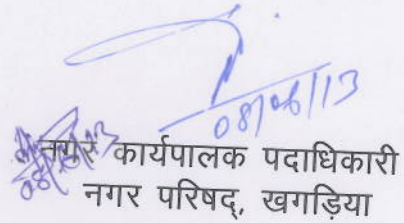 08/06/13
नगर कार्यपालक पदाधिकारी
08/06/13
नगर परिषद्, खगड़िया